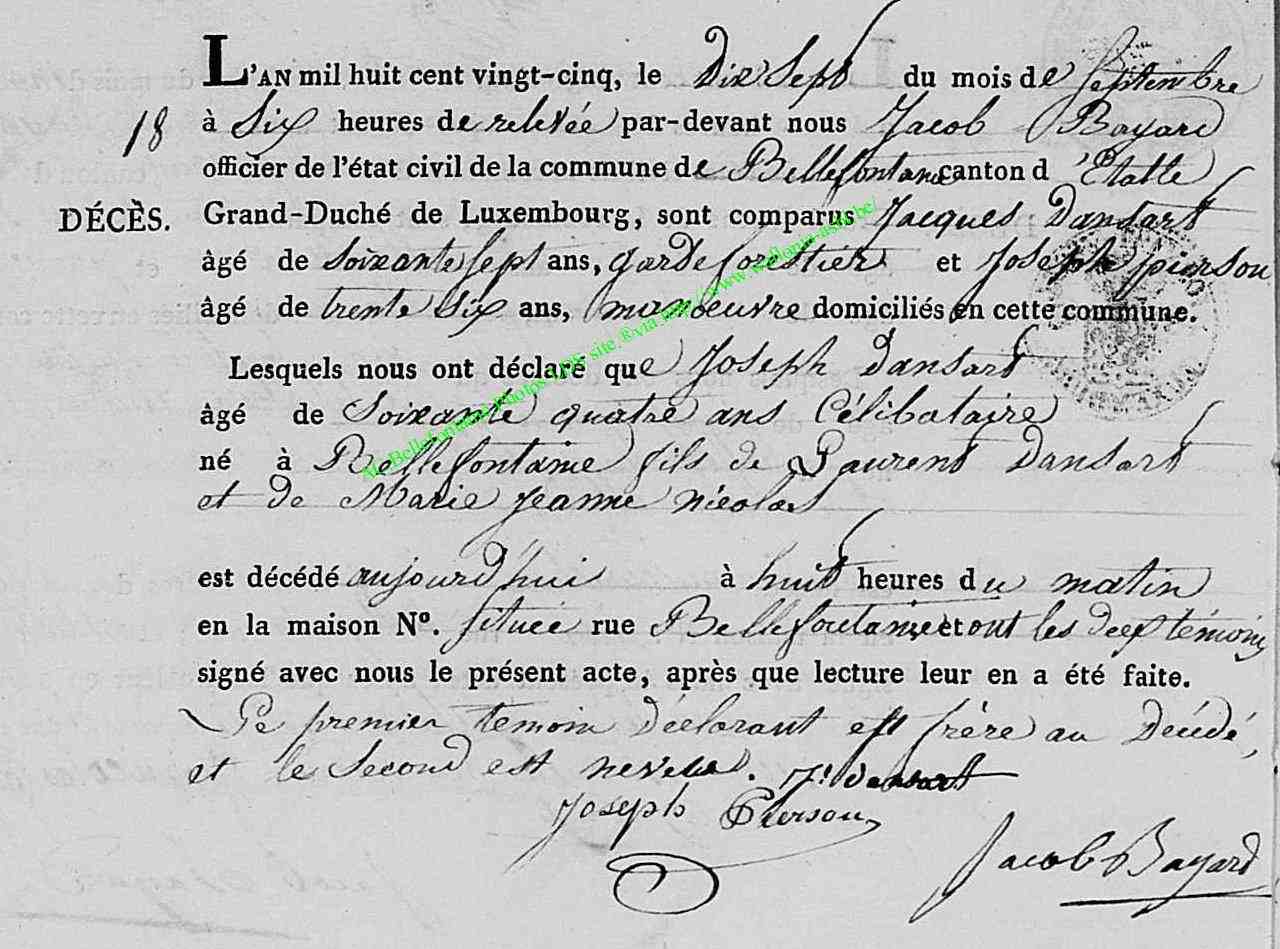 L'AN mil huit cent vingt-cinq, le Dix Sept du mois de Septembre
18 à Six heures de relevée par-devant nous Jacob Bayard
officier de l'état civil de la commune de Bellefontaine canton d'Etalle
DÉCÈS. Grand-Duché de Luxembourg, sont comparus Jacques Dansart
âgé de soixante sept ans, garde forestier et Joseph pierson
âgé de trente Six ans, manoeuvre domiciliés en cette commune.
Lesquels nous ont déclaré que Joseph Dansart
âgé de Soixante quatre ans Célibataire
né à Bellefontaine fils de Laurent Dansart
et de Marie jeanne nicolas
est décédé aujourd'hui à huit heures du matin
en la maison N°. située rue Bellefontaine et ont les deux témoins
signé avec nous le présent acte, après que lecture leur en a été faite.
Le premier temoin Déclarant est frère au Décédé,
et le Second est neveu. J. dansart
Joseph Pierson
Jacob Bayard